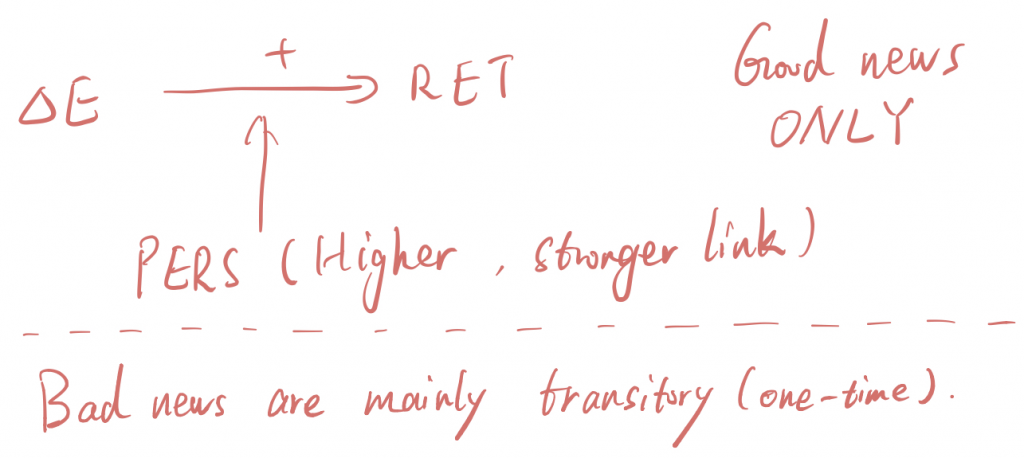 +
ΔE → RET
Good news
ONLY
PERS (Higher, stronger link)
Bad news are mainly transitory (one-time).